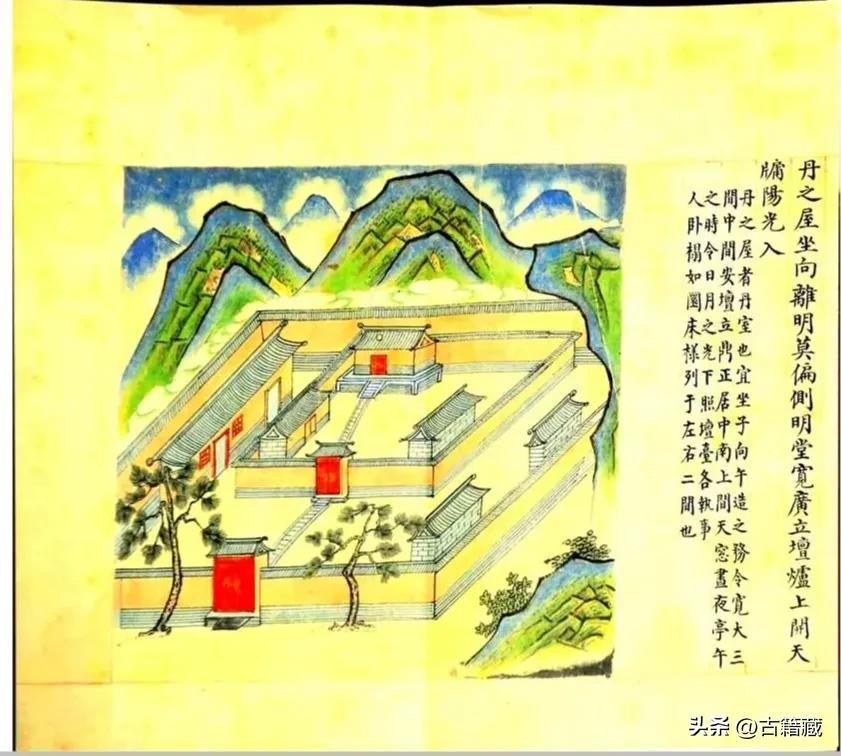 丹之屋坐向離明莫偏側明堂寬廣立壇爐上開天
牖陽光入
丹之屋者丹室也宜坐子向午造之務令寬大三
間中間安壇立鼎正居中南上間天窓晝夜亭午
之時令日月之光下照壇臺各執事
人卧褟如圖床樣列于左右二間也
头条 @古籍藏